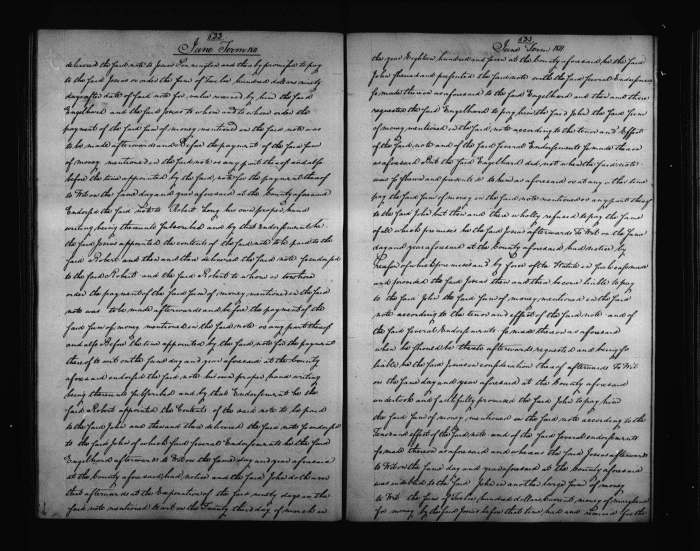 532
June Term 1811
delivered the said note to Jonas and then by promised to pay
to the said Jonas or order the sum of Twelve hundred dollars ninety
days after date of said note for value received by him the said
Engelhard and the said Jonas to whom and to whose order the
payment of the said sum of money mentioned in the said note was
to be made afterwards and Before the payment of the said sum
of money mentioned in the said note or any part thereof and also
before the time appointed by the said note for the payment thereof
to Wit on the same day and year aforesaid at the County aforesaid
Endorsed the said note to Robert Long his own proper hand
writing being thereunto subscribed and by that Endorsement he
the said Jonas appointed the contents of the said note to be paid to the
said Robert and then and there delivered the said note so endorsed
to the said Robert and the said Robert to whom or to whose
order the payment of the said sum of money mentioned in the said
note was to be made afterwards and before the payment of the
said sum of money mentioned in the said note or any part thereof
and also Before the time appointed by the said note for the payment
thereof to wit on the same day and year aforesaid at the County
aforesaid endorsed the said note his own proper hand writing
being thereunto subscribed and by that Endorsement he the
said Robert appointed the Contents of the said note to be paid
to the said John and then and there delivered the said note so endorsed
to the said John of which said several Endorsements he the said
Engelhard afterwards to Wit on the same day and year aforesaid
at the County aforesaid had notice and the said John doth aver
that afterwards at the Expiration of the said ninety days in the
said note mentioned to wit on the Twenty third day of march in
533
June Term 1811
the year Eighteen hundred and at the County aforesaid he the said
John shewed and presented the said note with the said several Endorsements
so made thereon as aforesaid to the said Engelhard and then and there
requested the said Engelhard to pay him the said John the said sum
of money mentioned in the said note according to the tenor and Effect
of the said note and of the said several Endorsements so made thereon
as aforesaid But the said Engelhard did not when the said note
was so shewn and presented to him as aforesaid or at any other time
pay the said sum of money in the said note mentioned or any part thereof
to the said John but then and there wholly refused to pay the same
of all which premises he the said Jonas afterwards To Wit on the same
day and year aforesaid at the County aforesaid had notice by
Reason of which premises and by force of the Statute in such case made
and provided the said Jonas then and there became liable to pay
to the said John the said sum of money mentioned in the said
note according to the tenor and effect of the said note and of
the said several Endorsements so made thereon as aforesaid
when he should be thereto afterwards requested and being so
liable he the said Jonas in consideration thereof afterwards To Wit
on the same day and year aforesaid at the County aforesaid
undertook and faithfully promised the said John to pay him
the said sum of money mentioned in the said note according to the
Tenor and effect of the said note and of the said several endorsements
so made thereon as aforesaid and whereas the said Jonas afterwards
to Wit on the same day and year aforesaid at the County aforesaid
was indebted to the said John in another large sum of money
to Wit the sum of Twelve hundred dollars Current money of maryland
for money by the said Jonas before that time had and received for the